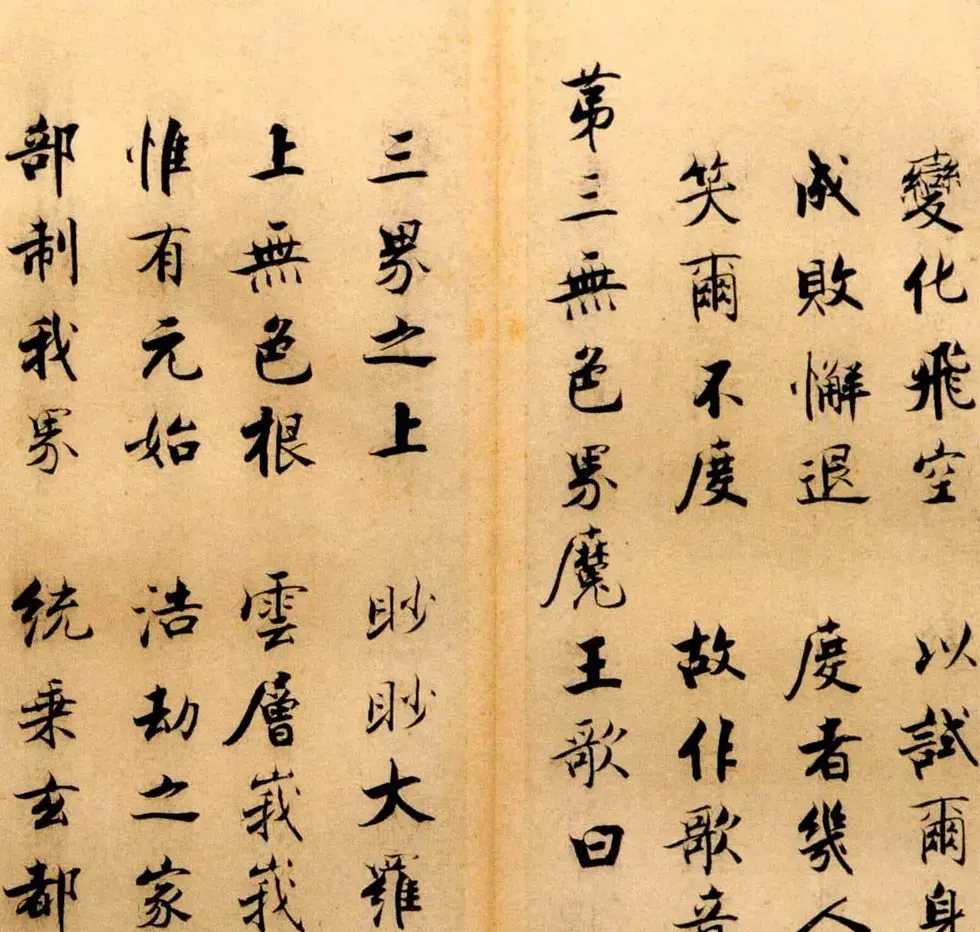 變化飛空 以試爾身
成敗懈退 度者幾人
笑爾不度 故作歌音
第三無色界魔王歌曰
三界之上 眇眇大羅
上無色根 雲層峩峩
惟有元始 浩劫之家
部制我界 統乗玄都